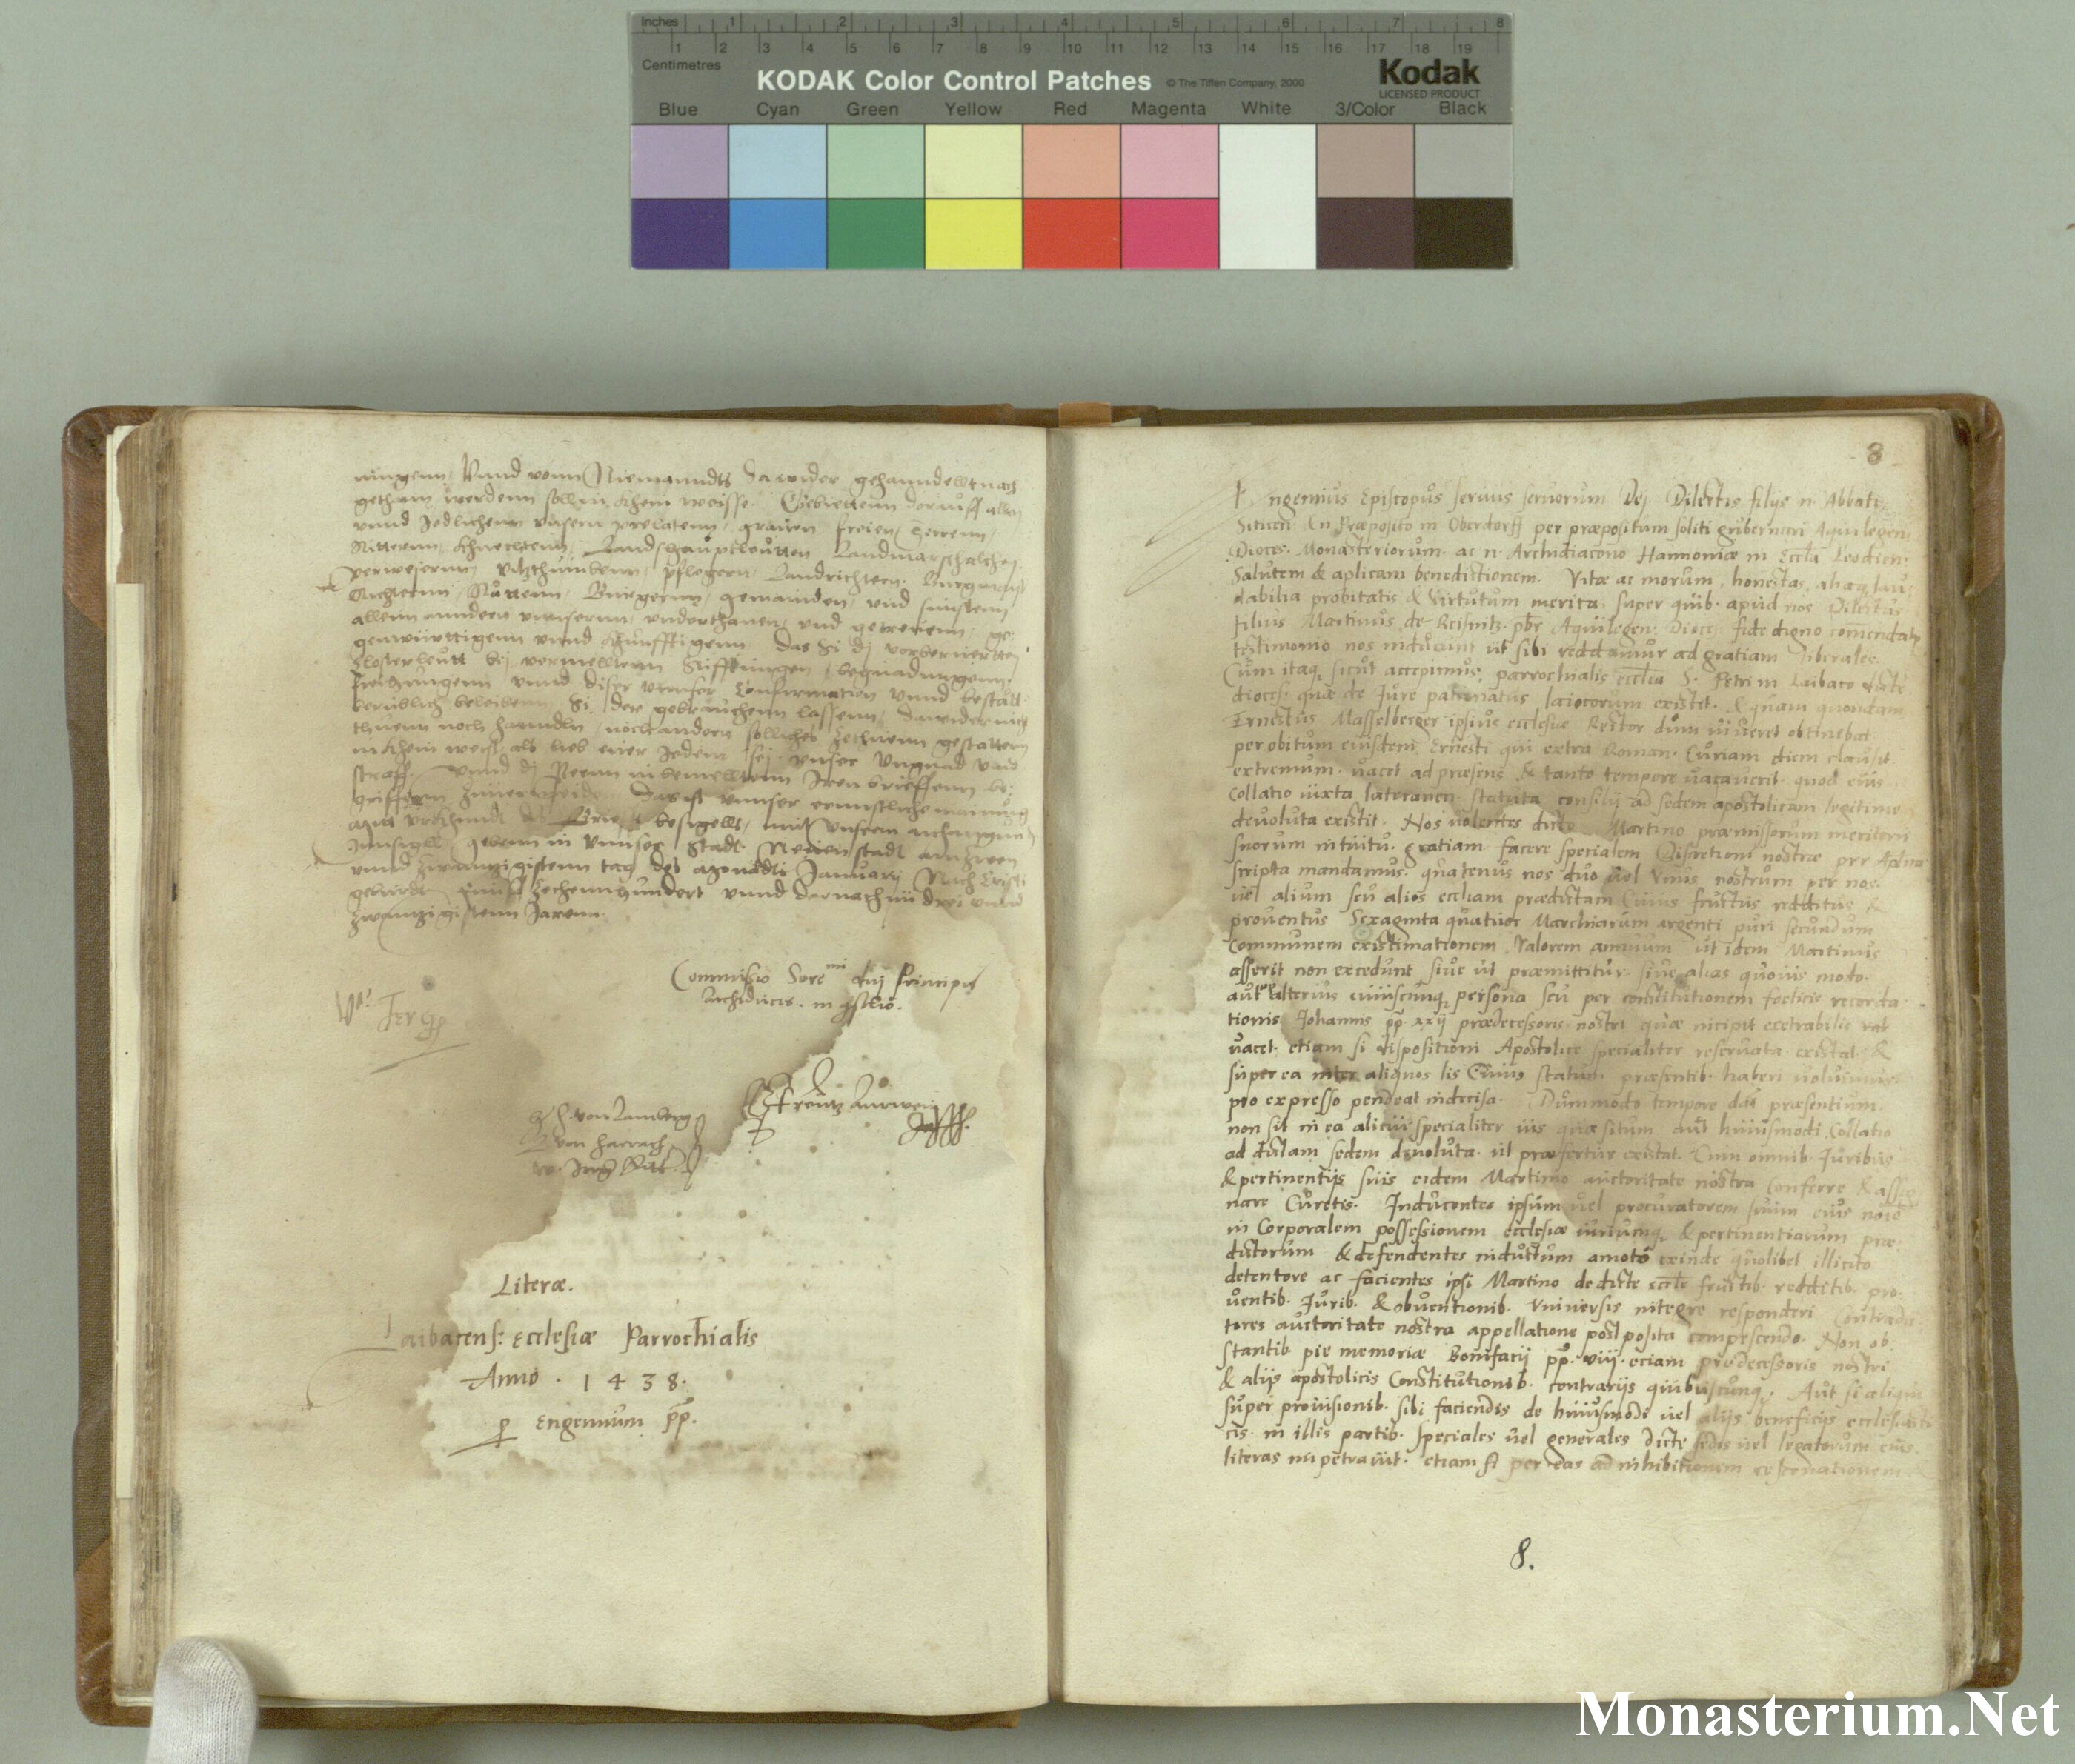 Inches 1 2 3 4 5 6 7 8
1 2 3 4 5 6 7 8 9 10 11 12 13 14 15 16 17 18 19
Centimetres
KODAK Color Control Patches © The Tiffen Company, 2000 Kodak
LICENSED PRODUCT
Blue Cyan Green Yellow Red Magenta White 3/Color Black
vnnd vonn Niemanndts dawider gehanndellt nach
gethann werdenn soll in khein weisse. Gebietten darauff allen
vnnd Jedlichenn vnsern prelatenn, grauen freien herrenn,
Ritternn, khnechtenn, Landshaubtleutten Landmarschalchen,
verwesernn, vitzthumbenn, pflegern, Landrichtern, Burgmaist
Richternn, Rättenn, Burgernn, gemainden, vnd sunstenn
allenn anndern vnnsernn, vnderthanen, vnd getreuenn, ge:
genwürttigenn vnnd khünfftigenn das Si dj vorberuertten
Closterleutt bej vermelltenn Stifftungen, begnadungenn,
freihungenn vnnd diser vnnser Confirmation vnnd bestätt
berublich beleibenn, Si der gebrauchenn lassenn, dawider nich
thuenn noch hanndln, noch andern solliches Zethuenn gestattenn
in khein weiss, als lieb einer Jedem sej vnser vngnad vnd
straff. vnnd dj Peenn in bemelltenn Iren brieffenn be:
griffenn Zuuermeiden Das ist vnnser ernnstliche mainung
mit vrkhundt des Brieffs besigellt, mit vnserm anhangund
Innsigll, gebenn in vnnser Stadt Neuenstadt am Zwen
vnnd Zwannzigistenn tag des Monadts Januarij Nach Cristi
geburdt funff Zechennhundert vnnd darnach im drei vnnd
Zwannzigistenn Jarenn.
Commissio Seremi dnj Principis
Archiducis. in Consilio.
H. von Lamberg
von Harrach
Literæ.
Laibacens: Ecclesiæ Parrochialis
Anno . 1438.
p Eugenium pp.
8
Eugenius Episcopus servus servorum Dej Dilectis filys n. Abbati
Siticen. & n Præposito in Oberdorff per præpositum soliti gubernari Aquilegen
Dioces. Monasteriorum. ac n. Archidiacono Hannoniæ in Eccla Leodien:
Salutem & aplicam benedictionem. Vitæ ac morum, honestas, aliaq. lau
dabilia probitatis & virtutum merita. super quib. apud nos Dilectus
filius Martinus de Reifnitz. pbr Aquilegen: Dioces. fide digno comendatur
testimonio nos inducunt ut sibi reddamur ad gratiam liberales.
Cum itaq. sicut accepimus, parrochialis ecclia S. Petri in Laibaco dicte
dioces. quæ de Jure patronatus laicorum existit. & quam quondam
Ernestus Masselberger ipsius ecclesiæ Rector dum viveret obtinebat
per obitum eiusdem Ernesti qui extra Roman. Curiam diem clausit
extremum. vacet ad præsens & tanto tempore vacaverit. quod eius
Collatio iuxta lateranen. statuta consilij ad sedem apostolicam legitime
devoluta existit. Nos volentes dicto Martino præmissorum meritorum
suorum intuitu. gratiam facere specialem Discretioni nostræ per Aplica
scripta mandamus. quatenus vos duo vel Unus vestrum per vos
vel alium seu alios eccliam prædictam Cuius fructus redditus &
proventus Sexaginta quatuor Marchiarum argenti puri secundum
Communem existimationem valorem annuum ut idem Martinus
asserit non excedunt sive ut præmittitur sive alias quovis modo
aut ex alterius cuiuscunq. persona seu per constitutionem foelicis recorda
tionis Johannis pp. xxij prædecessoris nostri quæ incipit execrabilis vat
vacet. etiam si dispositioni Apostolice specialiter reservata existat. &
super ea inter aliquos lis Cuius statum præsentib. haberi volumus
pro expresso pendeat indecisa. Dummodo tempore dat præsentium
non sit in ea alicui specialiter ius quæsitum aut huiusmodi Collatio
ad dictam sedem devoluta. ut præfertur existat. Cum omnib. Juribus
& pertinentijs suis eidem Martino auctoritate nostra conferre & assig
nare Curetis. Inducentes ipsum vel procuratorem suum eius noie
in Corporalem possessionem ecclesiæ iuriumq. & pertinentiarum præ:
dictorum & defendentes inductum amoto exinde quolibet illicito
detentore ac facientes ipsi Martino de dicte eccle fructib. redditib. pro:
ventib. Jurib. & obventionib. Universis integre responderi Contradic
tores auctoritate nostra appellatione postposita compescendo. Non ob
stantib pie memoriæ Bonifatij pp. viij. eciam prædecessoris nostri
& alijs apostolicis Constitutionib. contrarijs quibuscunq. Aut si aliqui
super provisionib. sibi faciendis de huiusmodi vel alijs beneficijs ecclesiasti
cis. in illis partib. speciales vel generales dicte sedis vel legatorum eius
literas impetravit. etiam si per eas ad inhibitionem reservationem &
8.
Monasterium.Net